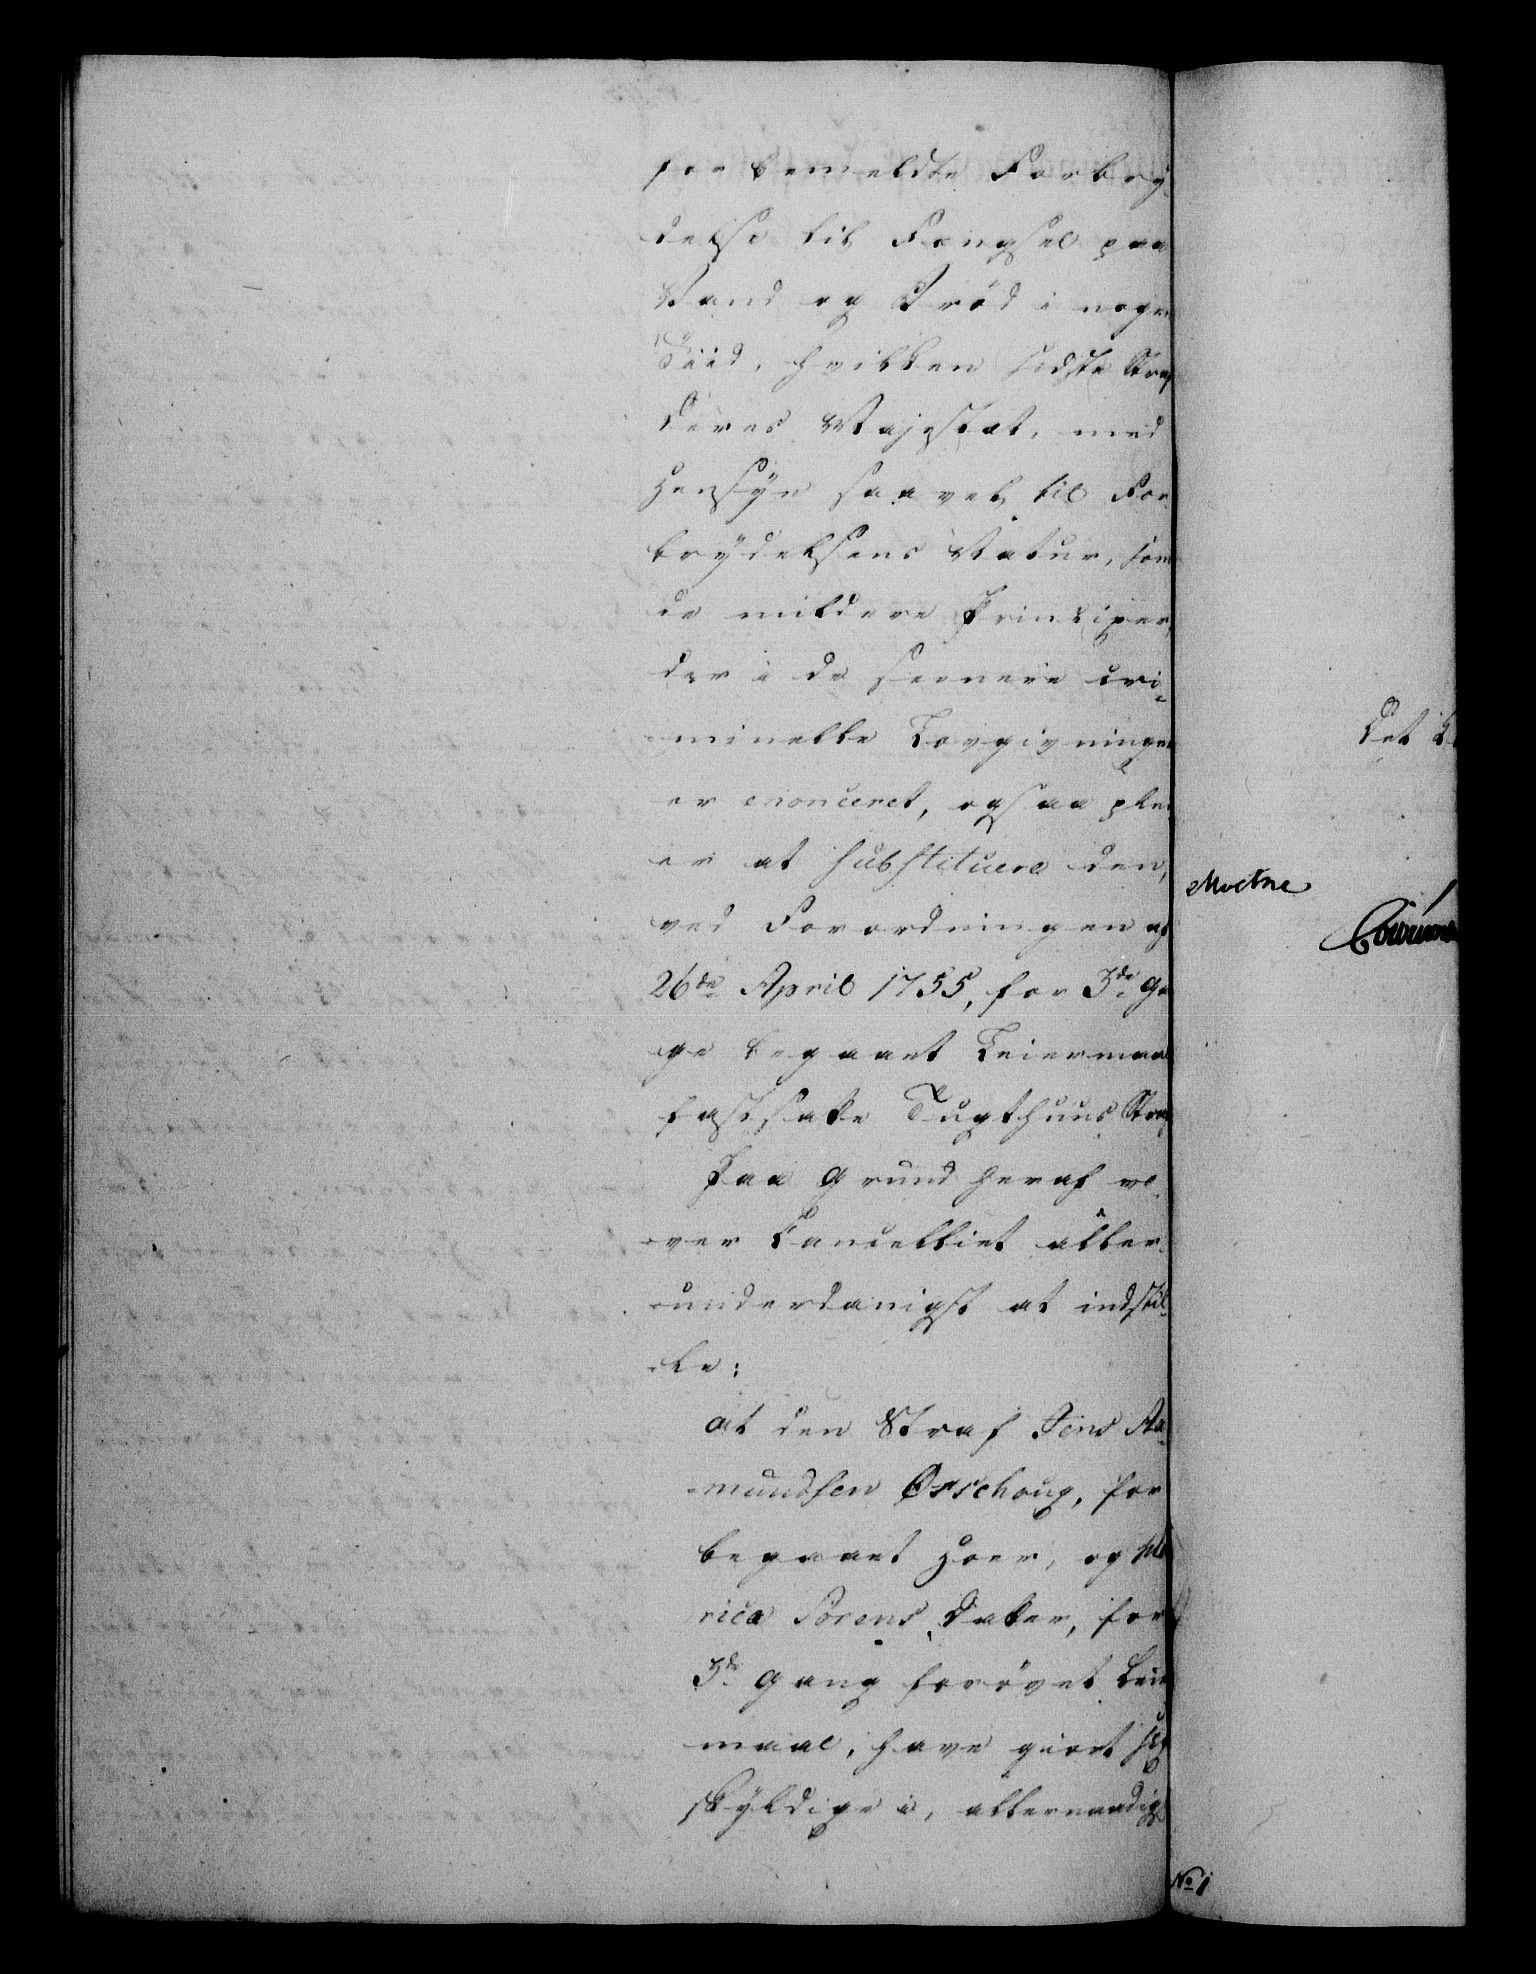 for bemeldte Forbry-
delse til Fængsel paa
Vand og Brød i nogen
Tiid, hvilken sidste Straf
Deres Majestæt, med
Hensyn saavel til For-
brydelsens Natur, som
de mildere Principer,
der i de seenere cri-
minelle Lovgivninger
er enonceret, ogsaa plei-
er at substituere den,
ved Forordningen af
26de April 1755, for 3de Gan-
ge begaaet Leiermaal
fastsatte Tugthuus Straf
Paa Grund heraf vo-
ver Cancelliet aller-
underdanigst at indstil-
le:
at den Straf Jens Aa-
mundsenØrschoug, for
begaaet Hoer, og
rica Sørens Datter, for
3de Gang forøvet Leier
maal, have giort sig
skyldige i, allernaadigst
Det
No 1